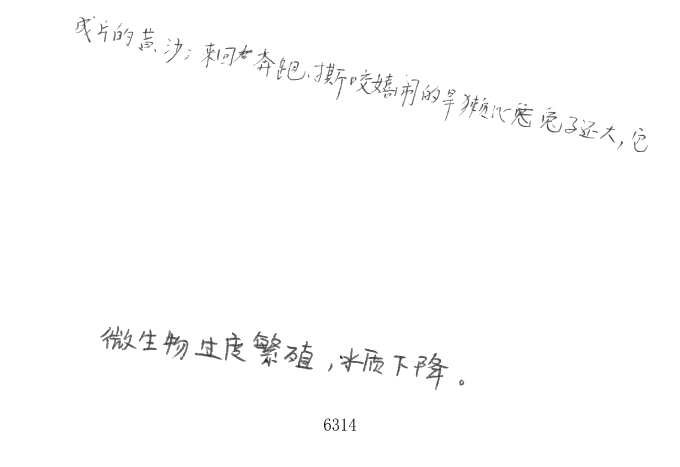 成片的黄沙；来回奔跑、撕咬嬉闹的旱獭比兔子还大，它
微生物过度繁殖，水质下降。
6314